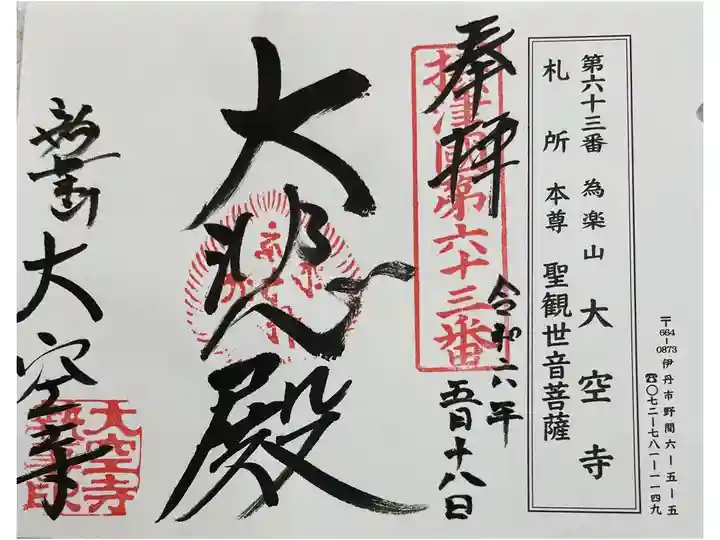 〒664-0873 伊丹市野間六-五-五
☎〇七二-七八一-一一四九
第六十三番 為楽山 大空寺
札所 本尊 聖観世音菩薩
奉拝
摂津國第六十三番
令和六年
五月十八日
大悲殿
為楽山 大空寺
大空寺